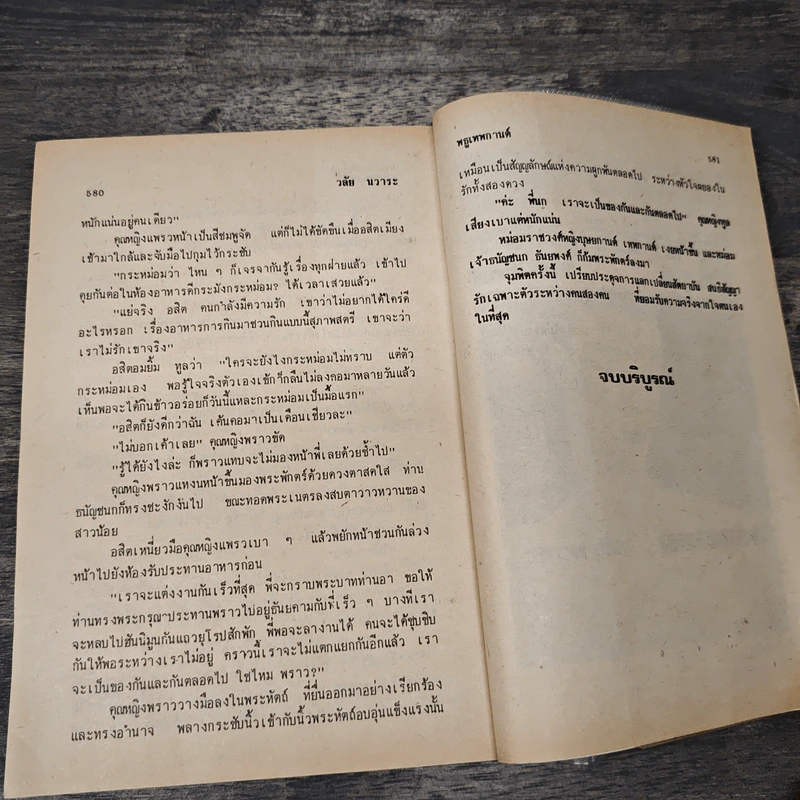 580
วลัย นวาระ
หนักแน่นอยู่คนเดียว"
คุณหญิงแพรวหน้าเป็นสีชมพูจัด แต่ก็ไม่ได้ขัดขืนเมื่ออสิตเมียง
เข้ามาใกล้และจับมือไปกุมไว้กระชับ
"กระหม่อมว่า ไหน ๆ ก็เจรจากันรู้เรื่องทุกฝ่ายแล้ว เข้าไป
คุยกันต่อในห้องอาหารดีกระมังกระหม่อม? ได้เวลาเสวยแล้ว"
"แย่จริง อสิต คนกำลังมีความรัก เขาว่าไม่อยากได้ใคร่ดี
อะไรหรอก เรื่องอาหารการกินมาชวนกินแบบนี้สุภาพสตรี เขาจะว่า
เราไม่รักเขาจริง"
อสิตอมยิ้ม ทูลว่า "ใครจะยังไงกระหม่อมไม่ทราบ แต่ตัว
กระหม่อมเอง พอรู้ใจจริงตัวเองเข้าก็กลืนไม่ลงคอมาหลายวันแล้ว
เห็นพอจะได้กินข้าวอร่อยก็วันนี้แหละกระหม่อมเป็นมื้อแรก"
"อสิตก็ยังดีกว่าฉัน เค้นคอมาเป็นเดือนเชียวละ"
"ไม่บอกเค้าเลย" คุณหญิงพราวขัด
"รู้ได้ยังไงล่ะ ก็พราวแทบจะไม่มองหน้าพี่เลยด้วยซ้ำไป"
คุณหญิงพราวแหงนหน้าขึ้นมองพระพักตร์ด้วยดวงตาสดใส ท่าน
ธนัญชนกก็ทรงชะงักงันไป ขณะทอดพระเนตรลงสบตาวาวหวานของ
สาวน้อย
อสิตเหนี่ยวมือคุณหญิงแพรวเบา ๆ แล้วพยักหน้าชวนกันล่วง
หน้าไปยังห้องรับประทานอาหารก่อน
"เราจะแต่งงานกันเร็วที่สุด พี่จะกราบพระบาทท่านอา ขอให้
ท่านทรงพระกรุณาประทานพราวไปอยู่ธันยคามกับพี่เร็ว ๆ บางทีเรา
จะหลบไปฮันนิมูนกันแถวยุโรปสักพัก พี่พอจะลางานได้ คนจะได้ซุบซิบ
กันให้พอระหว่างเราไม่อยู่ คราวนี้เราจะไม่แตกแยกกันอีกแล้ว เรา
จะเป็นของกันและกันตลอดไป ใช่ไหม พราว?"
คุณหญิงพราววางมือลงในพระหัตถ์ ที่ยื่นออกมาอย่างเรียกร้อง
และทรงอำนาจ พลางกระชับนิ้วเข้ากับนิ้วพระหัตถ์อบอุ่นแข็งแรงนั้น
พธูเทพกานต์
581
เหมือนเป็นสัญญลักษณ์แห่งความผูกพันตลอดไป ระหว่างหัวใจสยองใน
รักทั้งสองดวง
"ค่ะ พี่นก เราจะเป็นของกันและกันตลอดไป" คุณหญิงทูล
เสียงเบาแต่หนักแน่น
หม่อมราชวงศ์หญิงบุษยกานต์ เทพกานต์ เงยหน้าขึ้น และหม่อม
เจ้าธนัญชนก ธันยพงศ์ ก็ก้มพระพักตร์ลงมา
จุมพิตครั้งนี้ เปรียบประดุจการแลกเปลี่ยนสัตยาบัน สนธิสัญญา
รักเฉพาะตัวระหว่างคนสองคน ที่ยอมรับความจริงจากใจตนเอง
ในที่สุด
จบบริบูรณ์